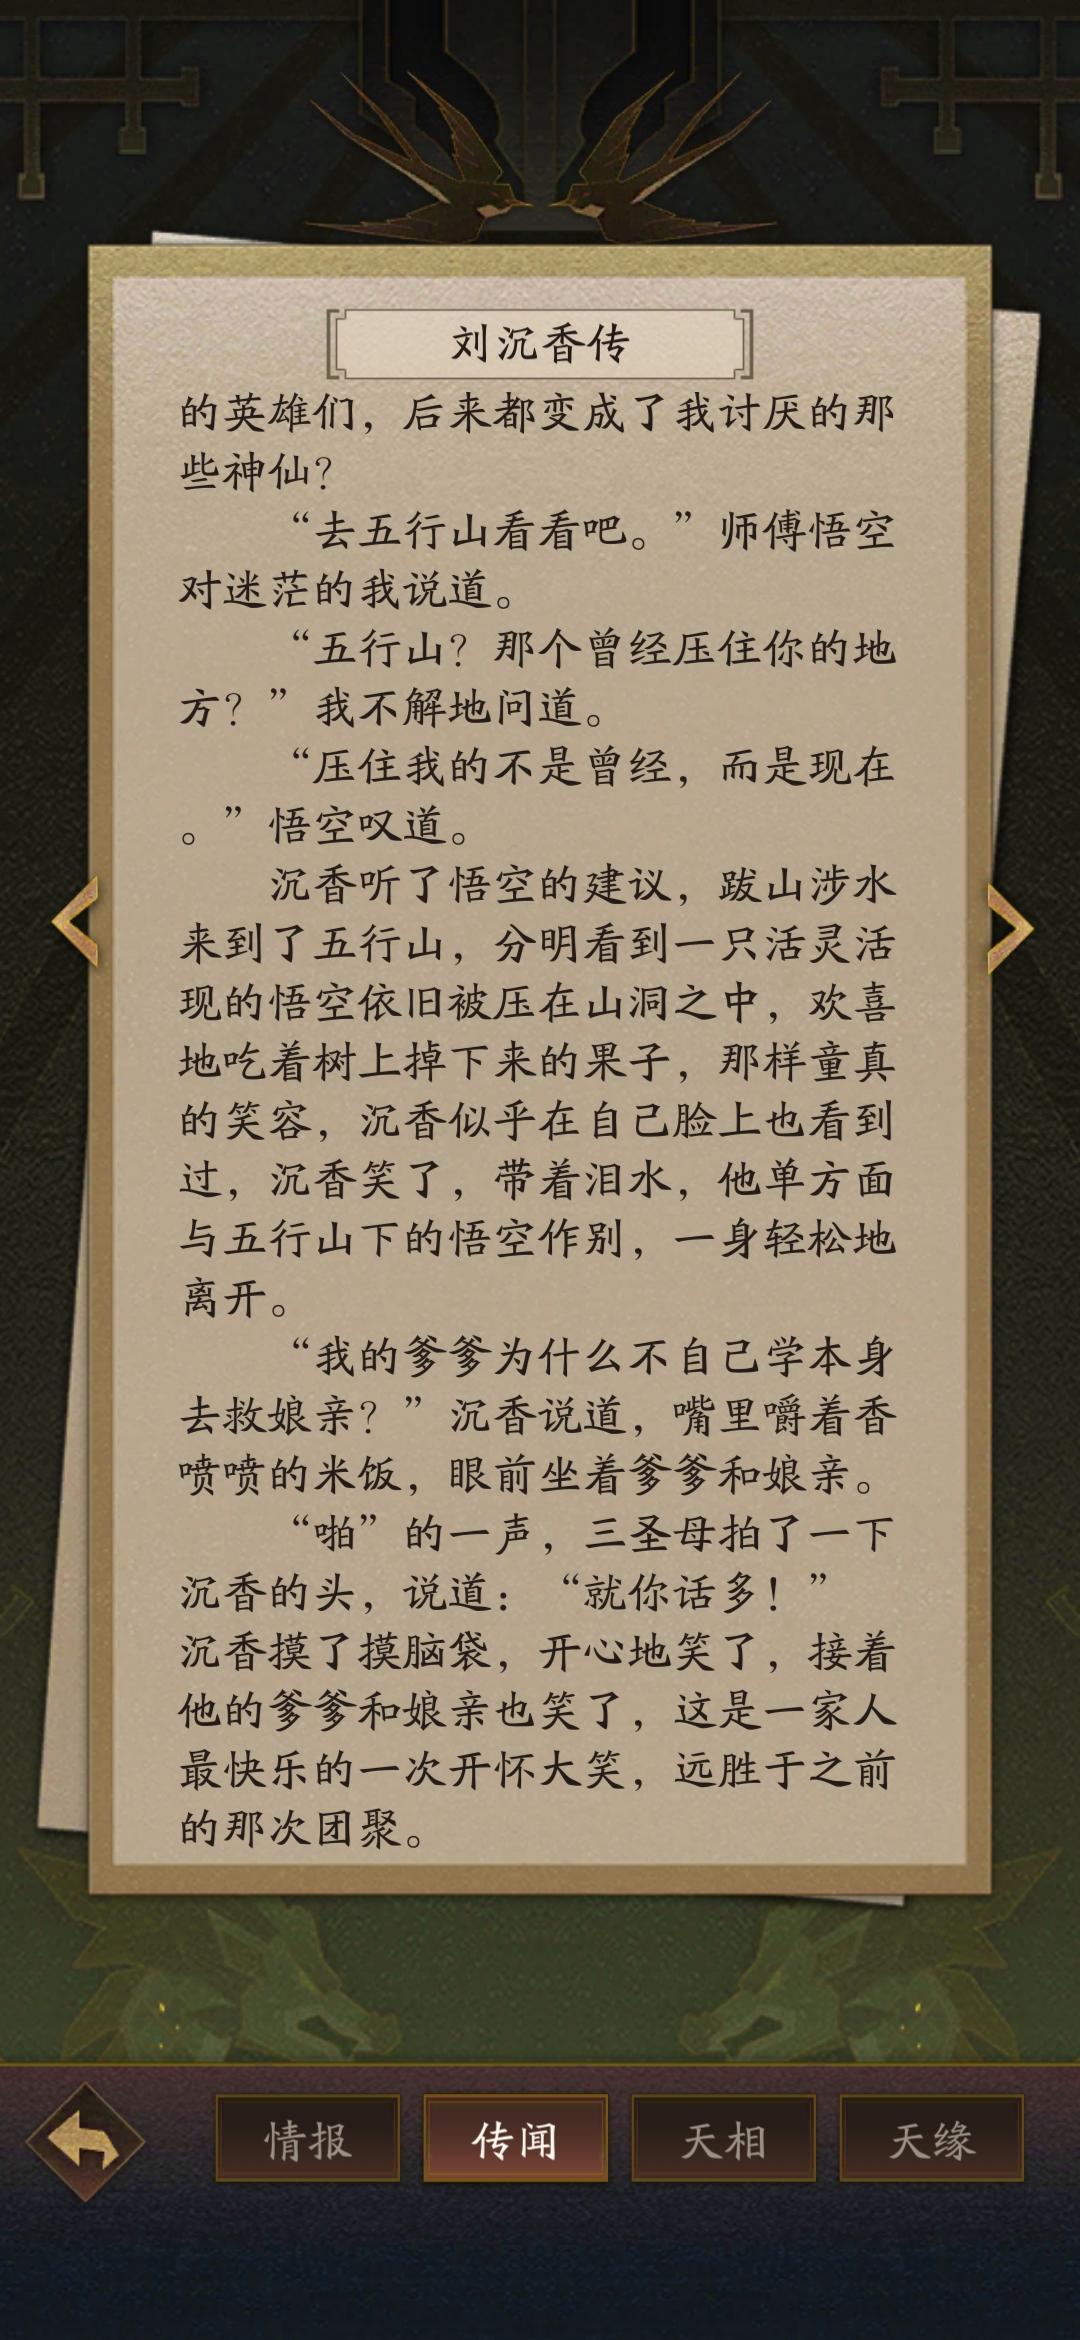 刘沉香传
的英雄们，后来都变成了我讨厌的那
些神仙？
“去五行山看看吧。”师傅悟空
对迷茫的我说道。
“五行山？那个曾经压住你的地
方？”我不解地问道。
“压住我的不是曾经，而是现在
。”悟空叹道。
沉香听了悟空的建议，跋山涉水
来到了五行山，分明看到一只活灵活
现的悟空依旧被压在山洞之中，欢喜
地吃着树上掉下来的果子，那样童真
的笑容，沉香似乎在自己脸上也看到
过，沉香笑了，带着泪水，他单方面
与五行山下的悟空作别，一身轻松地
离开。
“我的爹爹为什么不自己学本身
去救娘亲？”沉香说道，嘴里嚼着香
喷喷的米饭，眼前坐着爹爹和娘亲。
“啪”的一声，三圣母拍了一下
沉香的头，说道：“就你话多！”
沉香摸了摸脑袋，开心地笑了，接着
他的爹爹和娘亲也笑了，这是一家人
最快乐的一次开怀大笑，远胜于之前
的那次团聚。
情报 传闻 天相 天缘